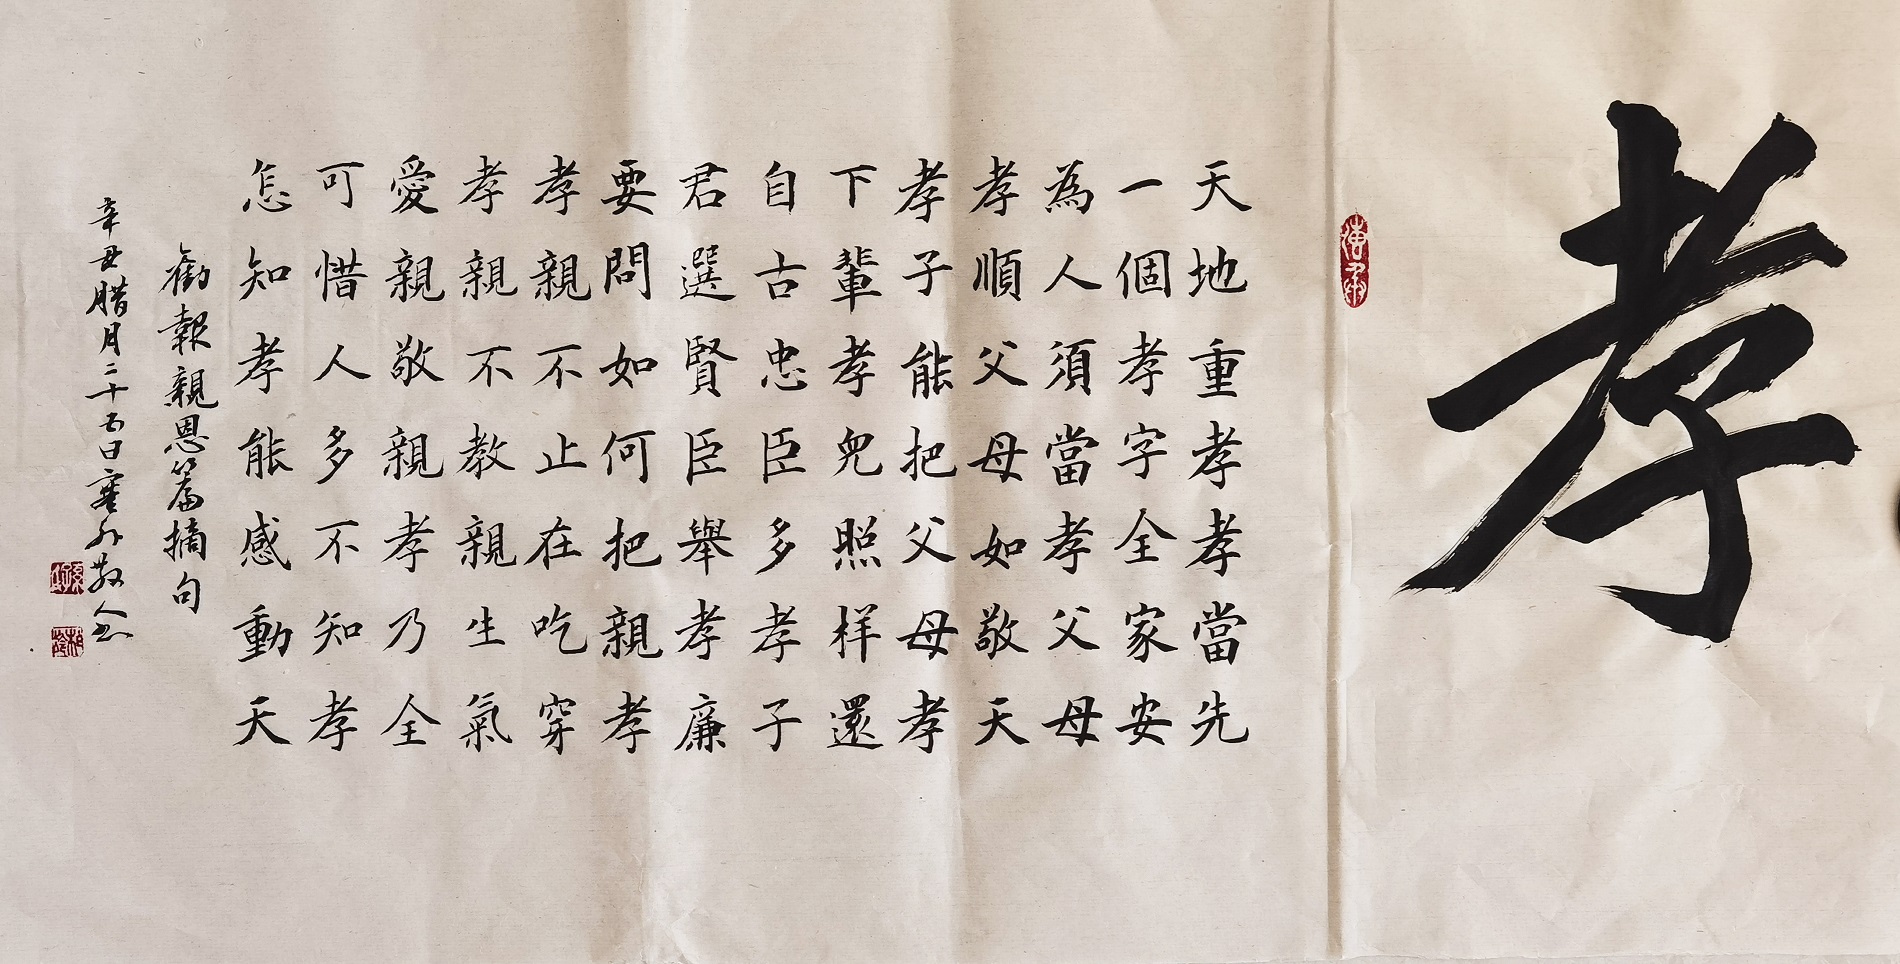 孝
天地重孝孝當先
一個孝字全家安
為人須當孝父母
孝順父母如敬天
孝子能把父母孝
下輩孝兒照样還
自古忠臣多孝子
君選賢臣舉孝廉
要問如何把親孝
孝親不止在吃穿
孝親不教親生氣
愛親敬親孝乃全
可惜人多不知孝
怎知孝能感動天
勸報親恩篇摘句
辛丑腊月二十五日塞外